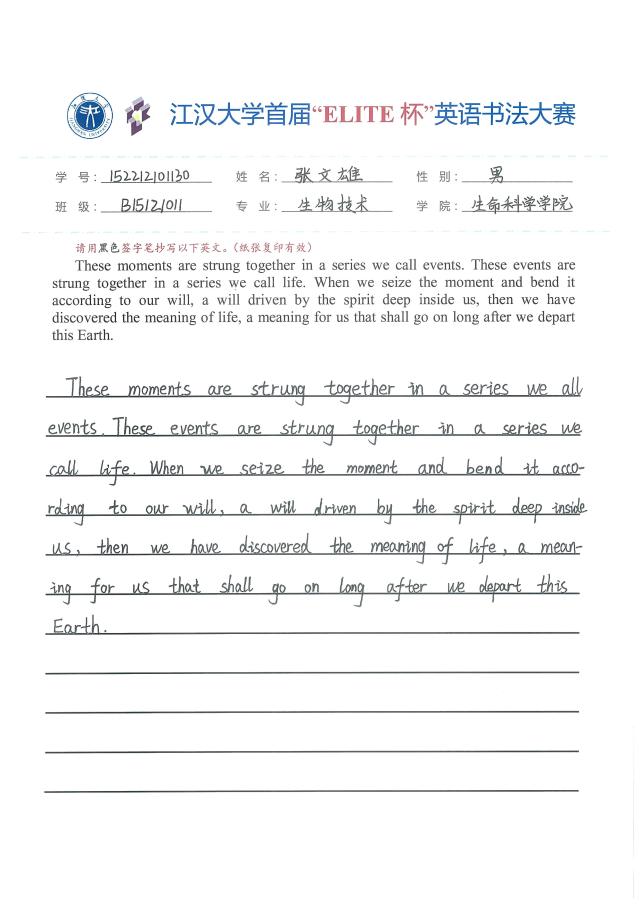 江汉大学首届“ELITE 杯”英语书法大赛
学 号：152212101130 姓 名：张文雄 性 别：男
班 级：B15121011 专 业：生物技术 学 院：生命科学学院
请用黑色签字笔抄写以下英文。（纸张复印有效）
These moments are strung together in a series we call events. These events are
strung together in a series we call life. When we seize the moment and bend it
according to our will, a will driven by the spirit deep inside us, then we have
discovered the meaning of life, a meaning for us that shall go on long after we depart
this Earth.
These moments are strung together in a series we all
events. These events are strung together in a series we
call life. When we seize the moment and bend it acco-
rding to our will, a will driven by the spirit deep inside
us, then we have discovered the meaning of life, a mean-
ing for us that shall go on long after we depart this
Earth.